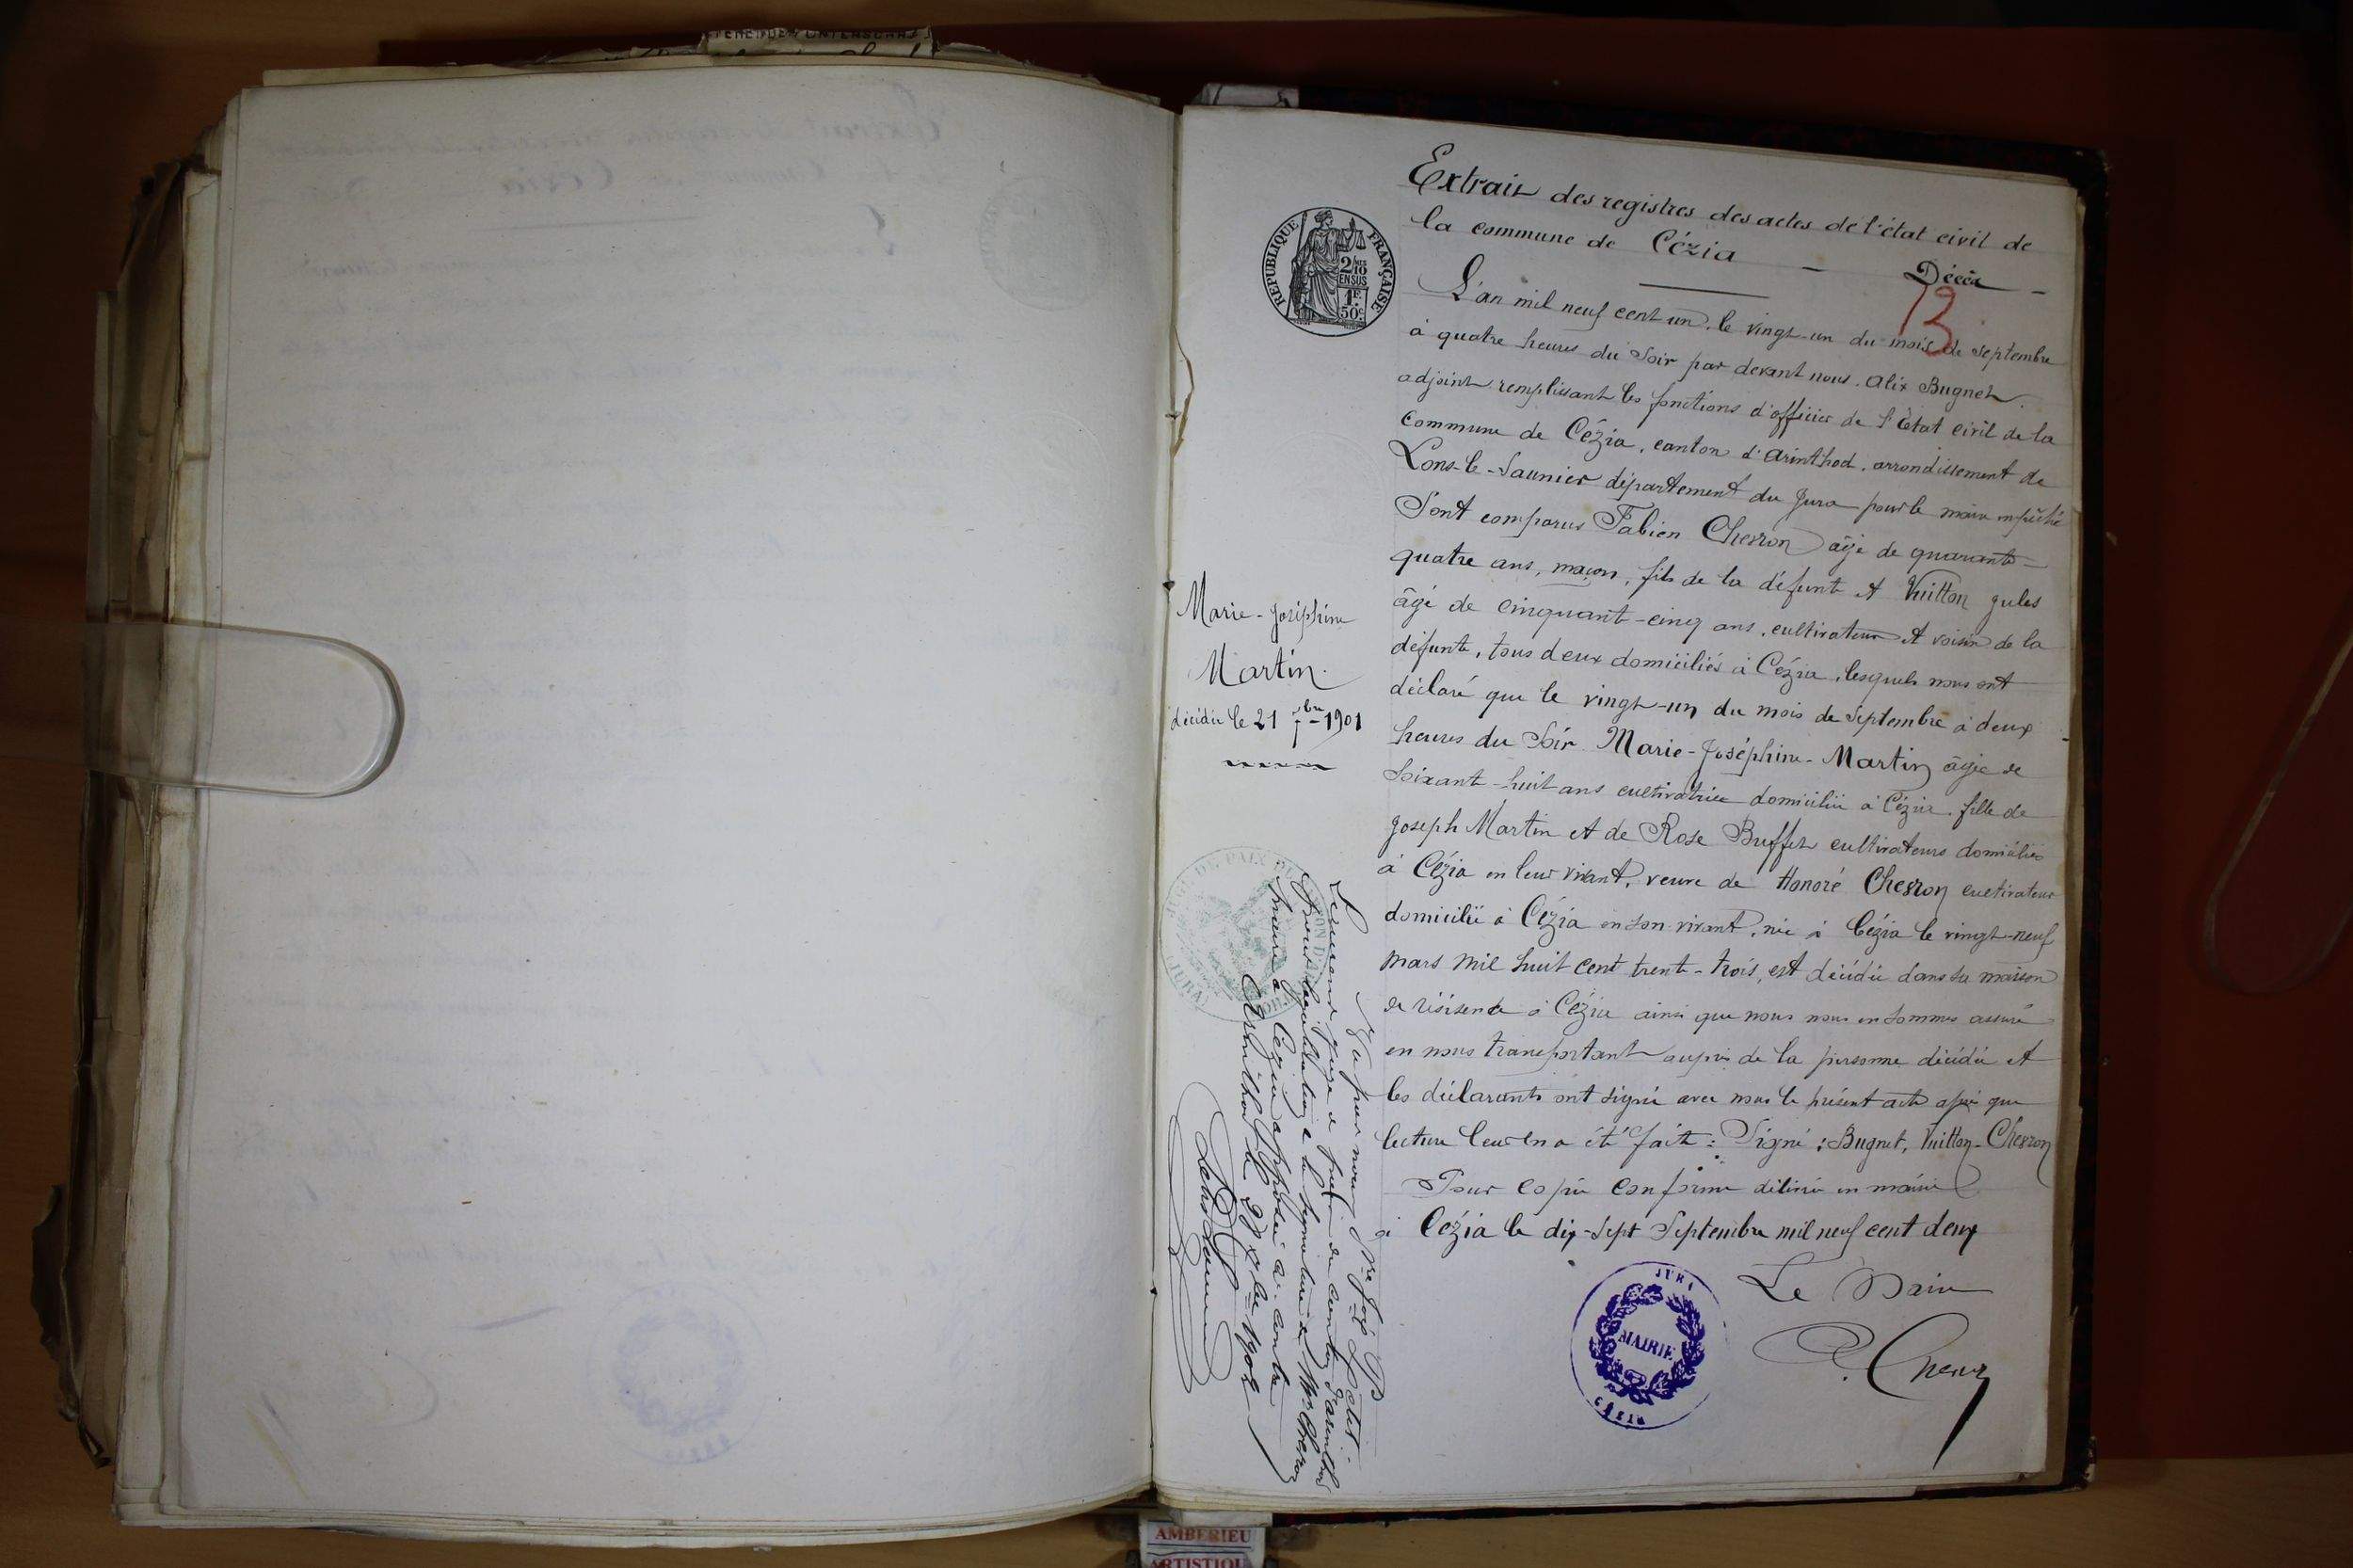 Extrait des registres des actes de l'état civil de
la commune de Cézia — Décès —
13
RÉPUBLIQUE FRANÇAISE
2/10 EN SUS
1F 50c
L'an mil neuf cent un, le vingt-un du mois de septembre
à quatre heures du Soir par devant nous, Alix Bugnet
adjoint remplissant les fonctions d'officier de l'État civil de la
Commune de Cézia, canton d'Arinthod, arrondissement de
Lons-le-Saunier département du Jura pour le maire empêché
Sont comparus Fabien Chesron âgé de quarante-
quatre ans, maçon, fils de la défunte et Vuitton Jules
âgé de cinquant-cinq ans, cultivateur et voisin de la
défunte, tous deux domiciliés à Cézia, lesquels nous ont
déclaré que le vingt-un du mois de Septembre à deux
heures du Soir Marie-Joséphine-Martin âgée de
soixant-huit ans cultivatrice domiciliée à Cézia, fille de
Joseph Martin et de Rose Buffet cultivateurs domiciliés
à Cézia en leur vivant, veuve de Honoré Chesron cultivateur
domicilié à Cézia en son vivant, née à Cézia le vingt-neuf
mars mil huit cent trent-trois, est décédée dans sa maison
de résisence à Cézia ainsi que nous nous en sommes assuré
en nous transportant auprès de la personne décédée et
les déclarants ont signé avec nous le présent acte après que
lecture leur en a été faite : Signé : Bugnet, Vuitton-Chesron
Pour copie conforme délivré en mairie
à Cézia le dix-sept Septembre mil neuf cent deux
Le Maire
JURA
MAIRIE
CÉZIA
Marie-Joséphine
Martin.
décédée le 21 7bre 1901
Vu par nous Jph Petit
juge de paix du canton d'Arinthod
pour légalisation de la signature de Mr Chesron
maire à Cézia apposée ci-contre
Arinthod le 1902
JUGE DE PAIX DU CANTON D'ARINTHOD
(JURA)
AMBERIEU
ARTISTIQU